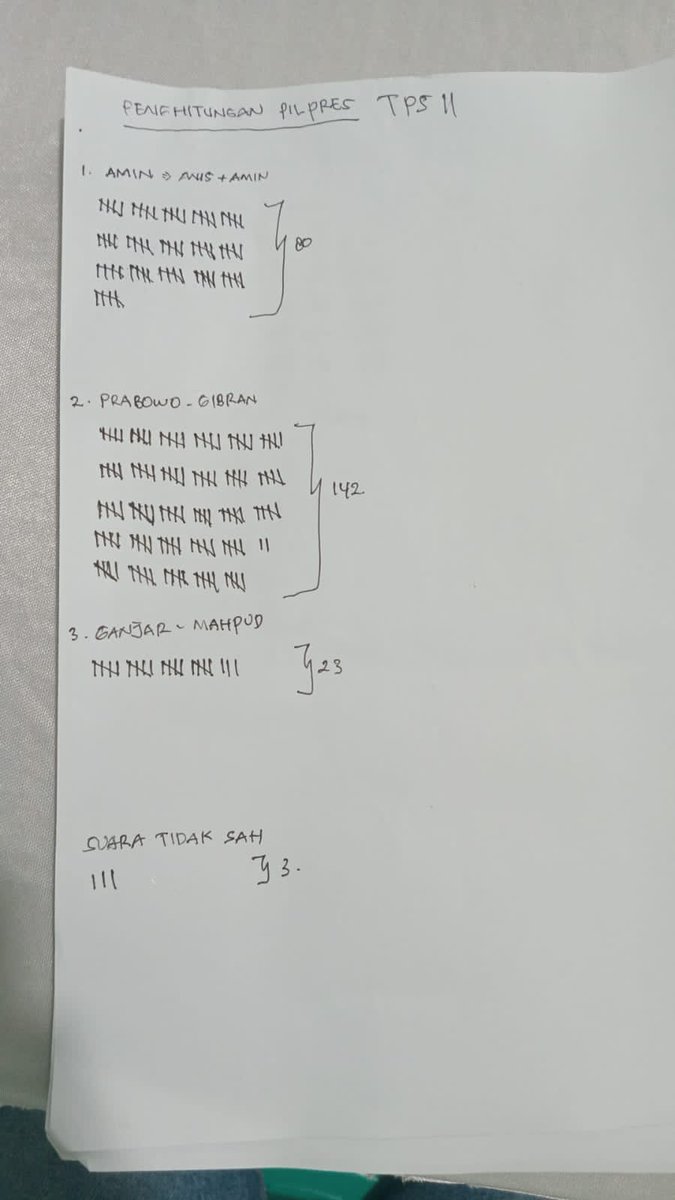 PENGHITUNGAN PILPRES TPS 11
1. AMIN => ANIS + AMIN
80
2. PRABOWO - GIBRAN
142
3. GANJAR - MAHPUD
23
SUARA TIDAK SAH
3.